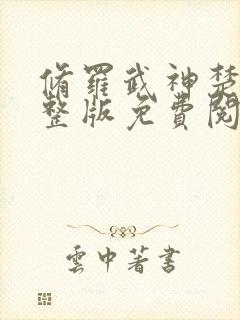 脩羅武神楚
整版免費閱
雲中著書